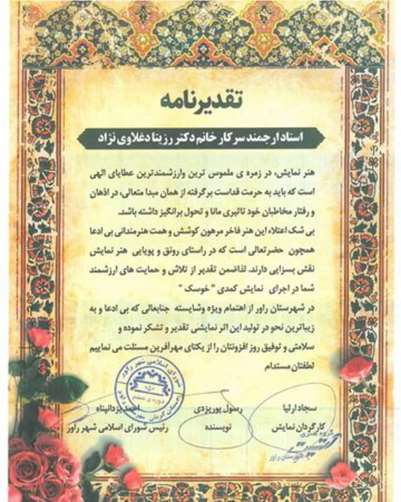 تقدیرنامه
استاد ارجمند سرکار خانم دکتر رزیتا دغلاوی نژاد
هنر نمایش، در زمره ی ملموس ترین وارزشمندترین عطایای الهی
است که باید به حرمت قداست برگرفته از همان مبدا متعالی، در اذهان
و رفتار مخاطبان خود تاثیری مانا و تحول برانگیز داشته باشد.
بی شک اعتلاء این هنر فاخر مرهون کوشش و همت هنرمندانی بی ادعا
همچون حضرتعالی است که در راستای رونق و پویایی هنر نمایش
نقش بسزایی دارند. لذاضمن تقدیر از تلاش و حمایت های ارزشمند
شما در اجرای نمایش کمدی " خوسک "
در شهرستان راور از اهتمام ویژه وشایسته جنابعالی که بی ادعا و به
زیباترین نحو در تولید این اثر نمایشی تقدیر و تشکر نموده و
سلامتی و توفیق روز افزونتان را از یکتای مهرآفرین مسئلت می نماییم
لطفتان مستدام
سجاد ارلیا رسول پوریزدی احمد یزدانپناه
کارگردان نمایش نویسنده رئیس شورای اسلامی شهر راور
شورای اسلامی شهر راور